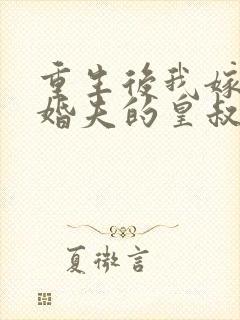 重生後我嫁
婚夫的皇叔
夏微言